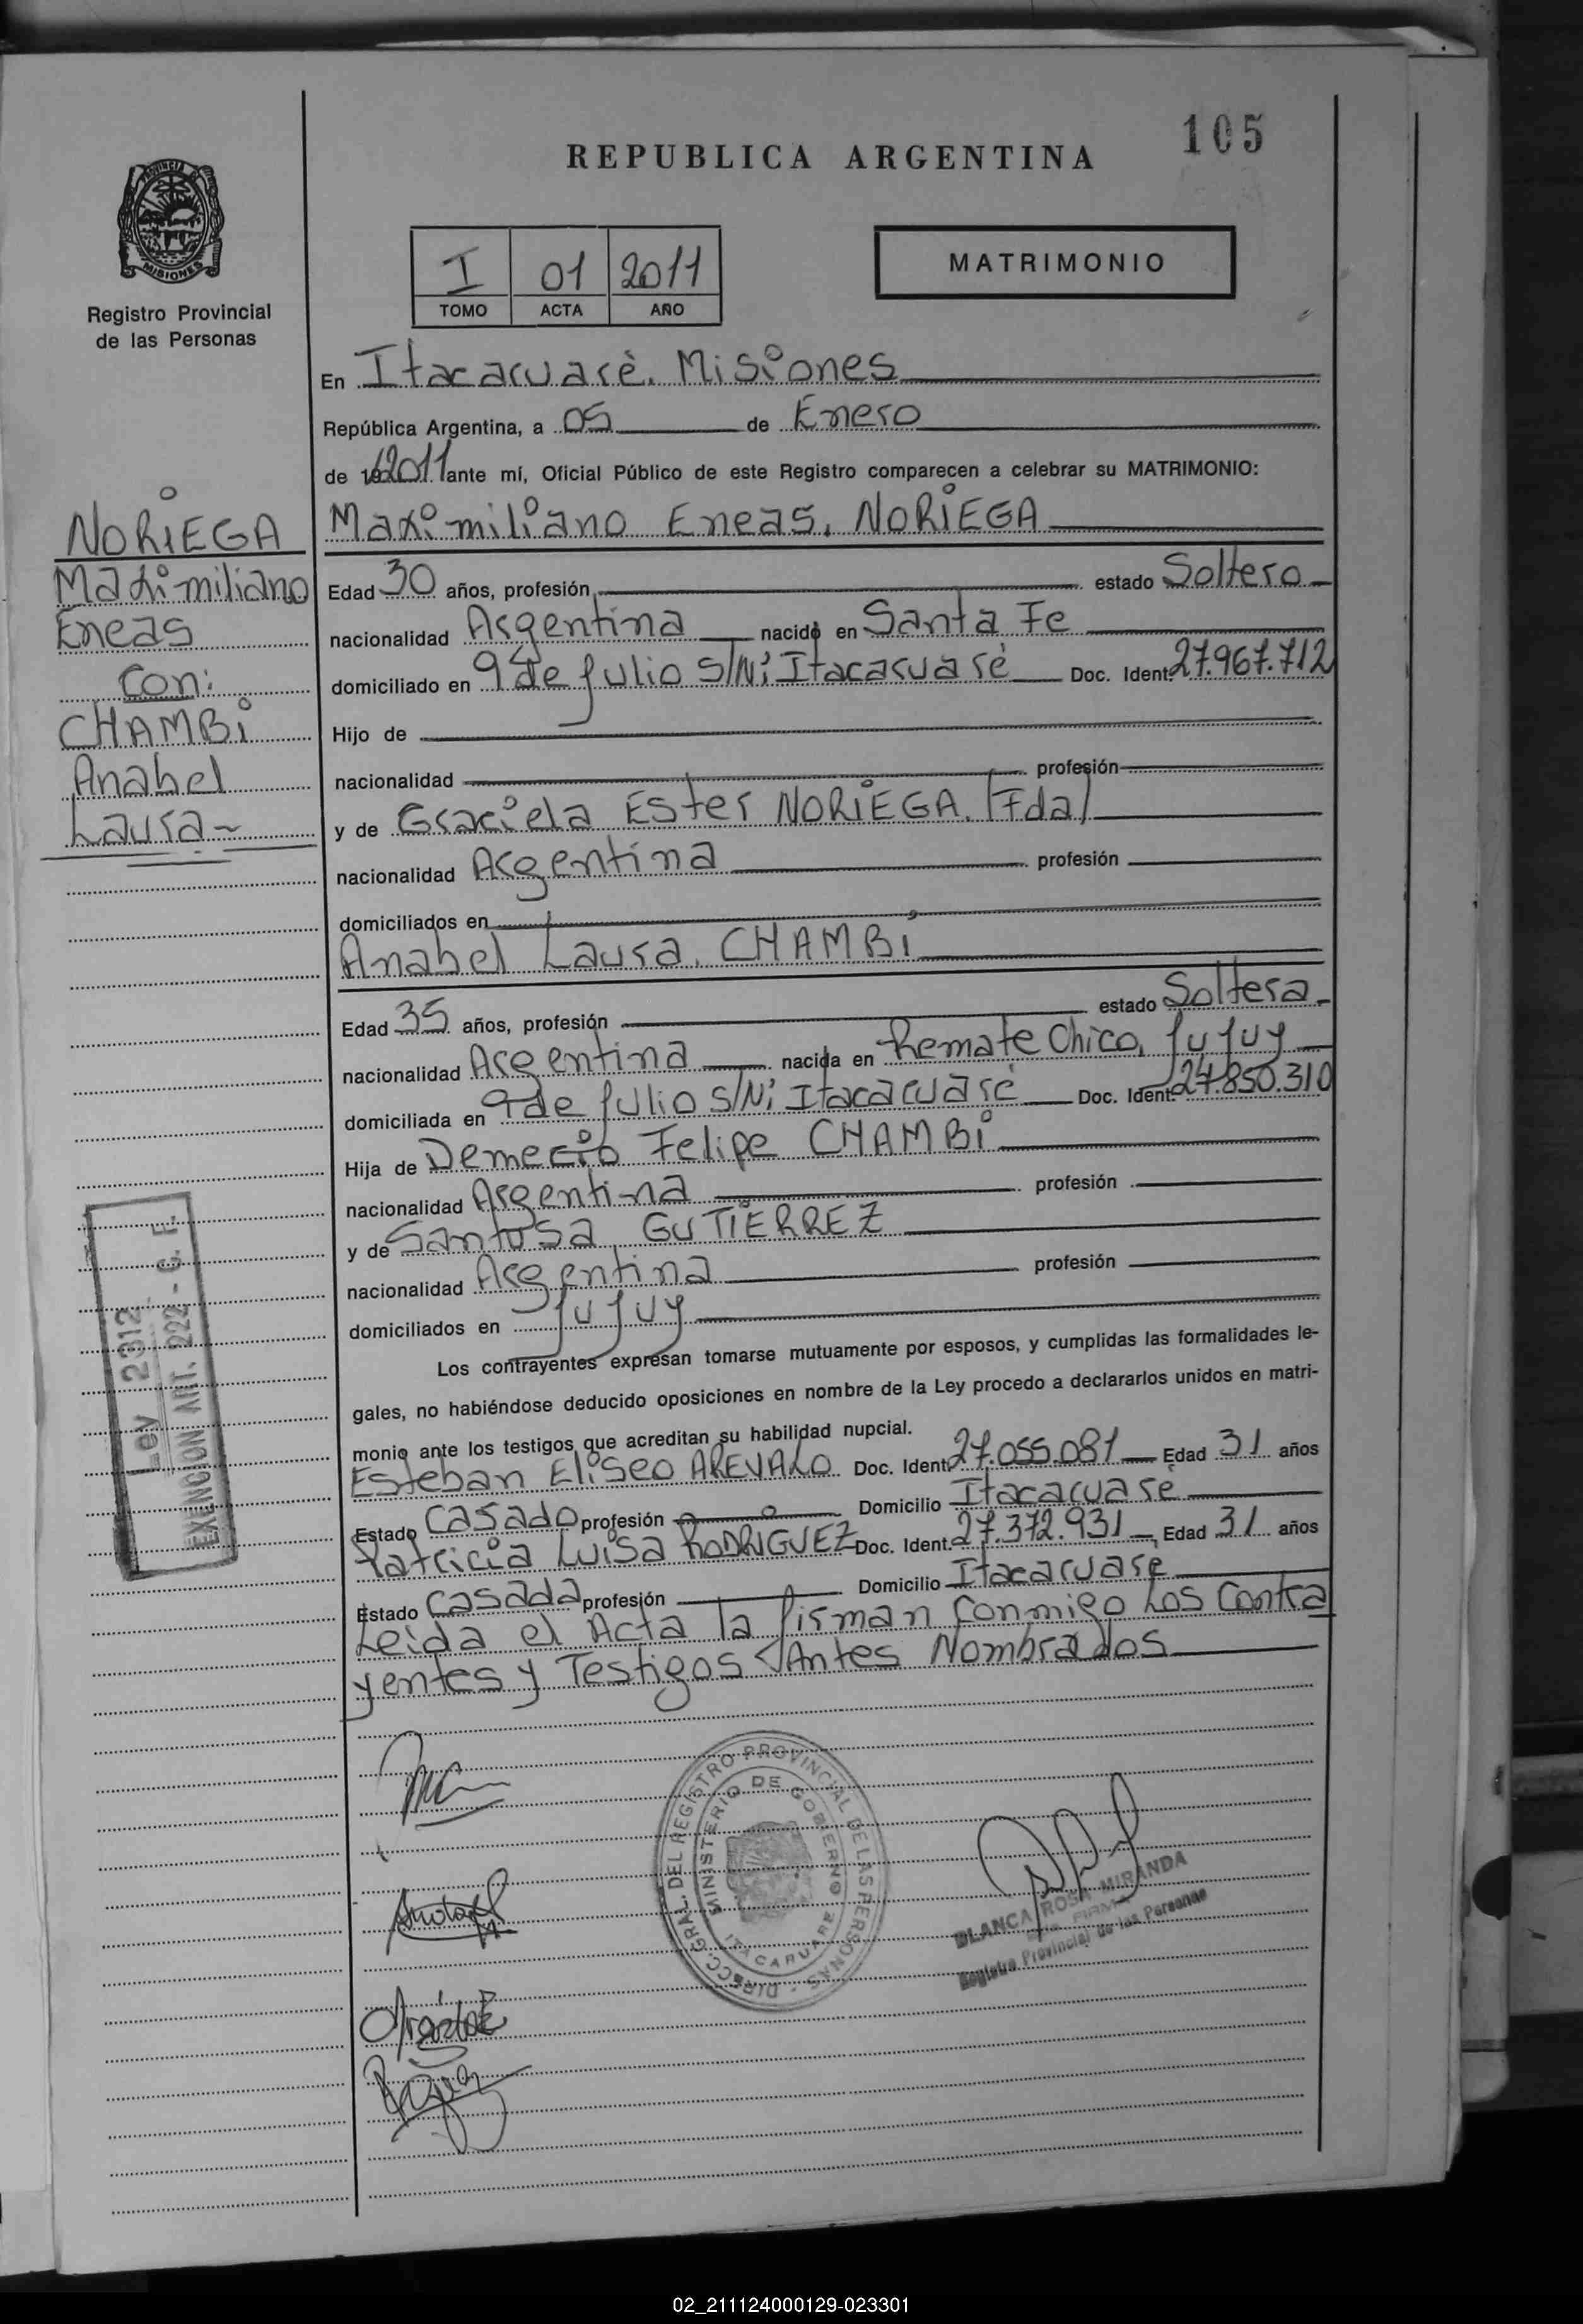 105
REPUBLICA ARGENTINA
PROVINCIA DE
MISIONES
Registro Provincial
de las Personas
I 01 2011
TOMO ACTA AÑO
MATRIMONIO
NORIEGA
Maximiliano
Eneas
Con:
CHAMBI
Anabel
Laura
Ley 2312
EXENCION ART. 222 - C. F.
En Itacaruaré. Misiones
República Argentina, a 05 de Enero
de 19 2011 ante mí, Oficial Público de este Registro comparecen a celebrar su MATRIMONIO:
Maximiliano Eneas, NORIEGA
Edad 30 años, profesión estado Soltero
nacionalidad Argentina nacido en Santa Fe
domiciliado en 9 de Julio S/N; Itacaruaré Doc. Ident. 27.967.712
Hijo de
nacionalidad profesión
y de Graciela Ester NORIEGA. (Fda)
nacionalidad Argentina profesión
domiciliados en
Anabel Laura, CHAMBI
Edad 35 años, profesión estado Soltera
nacionalidad Argentina nacida en Remate Chico, Jujuy
domiciliada en 9 de Julio S/N; Itacaruaré Doc. Ident. 24.850.310
Hija de Felipe CHAMBI
nacionalidad Argentina profesión
y de Santosa GUTIERREZ
nacionalidad Argentina profesión
domiciliados en Jujuy
Los contrayentes expresan tomarse mutuamente por esposos, y cumplidas las formalidades le-
gales, no habiéndose deducido oposiciones en nombre de la Ley procedo a declararlos unidos en matri-
monio ante los testigos que acreditan su habilidad nupcial.
Esteban Eliseo AREVALO Doc. Ident. 27.055.081 Edad 31 años
Estado Casado profesión Domicilio Itacaruaré
Patricia Luisa RODRIGUEZ Doc. Ident. 27.372.931 Edad 31 años
Estado Casada profesión Domicilio Itacaruaré
Leida el Acta la firman conmigo Los Contra
yentes y Testigos Antes Nombrados
DIRECC. GRAL. DEL REGISTRO PROVINCIAL DE LAS PERSONAS
MINISTERIO DE GOBIERNO
ITACARUARE
BLANCA ROSA MIRANDA
Registro Provincial de las Personas
02_211124000129-023301